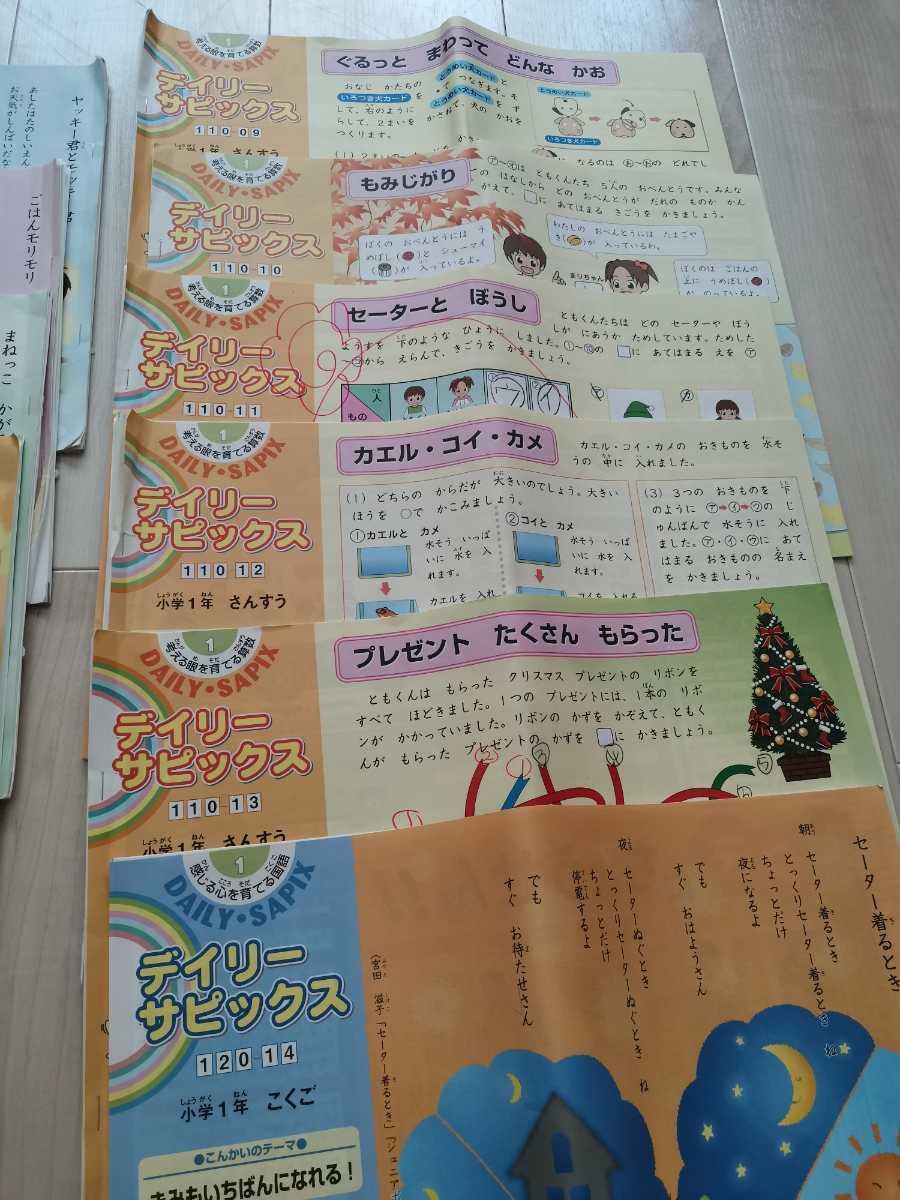 ヤッキー君と
あしたはたのしいえん
お天気がしんぱいだな
ごはんモリモリ
まねっこ
1
考える眼を育てる算数
DAILY・SAPIX
デイリー
サピックス
110-09
小学1年 さんすう
ぐるっと まわって どんな かお
おなじ かたちの
いろつき犬カード
とうめい犬カードと
でつなぎます。そ
とうめい犬カードをず
して、右のように
かさねて、犬の かおを
らして、2まいを
つくります。
とうめい犬カード
いろつき犬カード
DAILY・SAPIX
デイリー
サピックス
110-10
もみじがり
ア〜オは ともくんたち 5人の おべんとうです。みんな
の はなしから どの おべんとうが だれの ものか かん
がえて、□に あてはまる きごうを かきましょう。
ぼくの おべんとうには う
めぼし()と シューマイ
()が 入っているよ。
わたしの おべんとうには たまごや
き()が 入っているわ。
まりちゃん
ぼくのは ごはんの
上に うめぼし()
が のっているよ。
1
考える眼を育てる算数
DAILY・SAPIX
デイリー
サピックス
110-11
セーターと ぼうし
ともくんたちは どの セーターや ぼう
しが にあうか ためしています。ためした
ようすを 下のような ひょうに しました。
□に あてはまる えを ア
から えらんで、きごうを かきましょう。
ひと
もの
ウ
イ
1
考える眼を育てる算数
DAILY・SAPIX
デイリー
サピックス
110-12
小学1年 さんすう
カエル・コイ・カメ
カエル・コイ・カメの おきものを 水そ
うの 中に 入れました。
(1) どちらの からだが 大きいのでしょう。大きい
ほうを ○で かこみましょう。
①カエルと カメ
水そう いっぱ
いに 水を 入
れます。
カエルを 入れ
②コイと カメ
水そう いっぱ
いに 水を 入
れます。
コイを 入れる
(3) 3つの おきものを 下
のように ア➡イ➡ウの じ
ゅんばんで 水そうに 入れ
ました。ア・イ・ウに あて
はまる おきものの 名まえ
を かきましょう。
1
考える眼を育てる算数
DAILY・SAPIX
デイリー
サピックス
110-13
小学1年 さんすう
プレゼント たくさん もらった
ともくんは もらった クリスマス プレゼントの リボンを
すべて ほどきました。1つの プレゼントには、1本の リボ
ンが かかっていました。リボンの かずを かぞえて、ともく
んが もらった プレゼントの かずを □に かきましょう。
1
感じる心を育てる国語
DAILY・SAPIX
デイリー
サピックス
120-14
小学1年 こくご
●こんかいのテーマ●
きみもいちばんになれる!
セーター着るとき
朝 セーター着るとき
とっくりセーター着るとき ね
ちょっとだけ
夜になるよ
でも
すぐ おはようさん
夜 セーターぬぐとき
とっくりセーターぬぐとき ね
ちょっとだけ
停電するよ
でも
すぐ お待たせさん
(宮田 滋子「セーター着るとき」『ジュニア